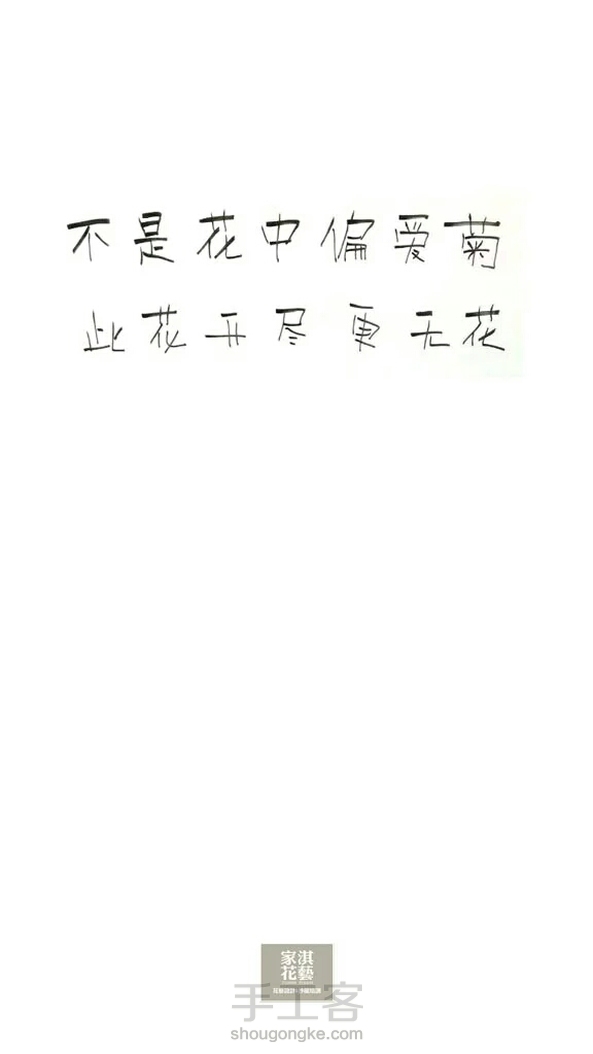 不是花中偏爱菊
此花开尽更无花
家淇
花藝
手工客
shougongke.com